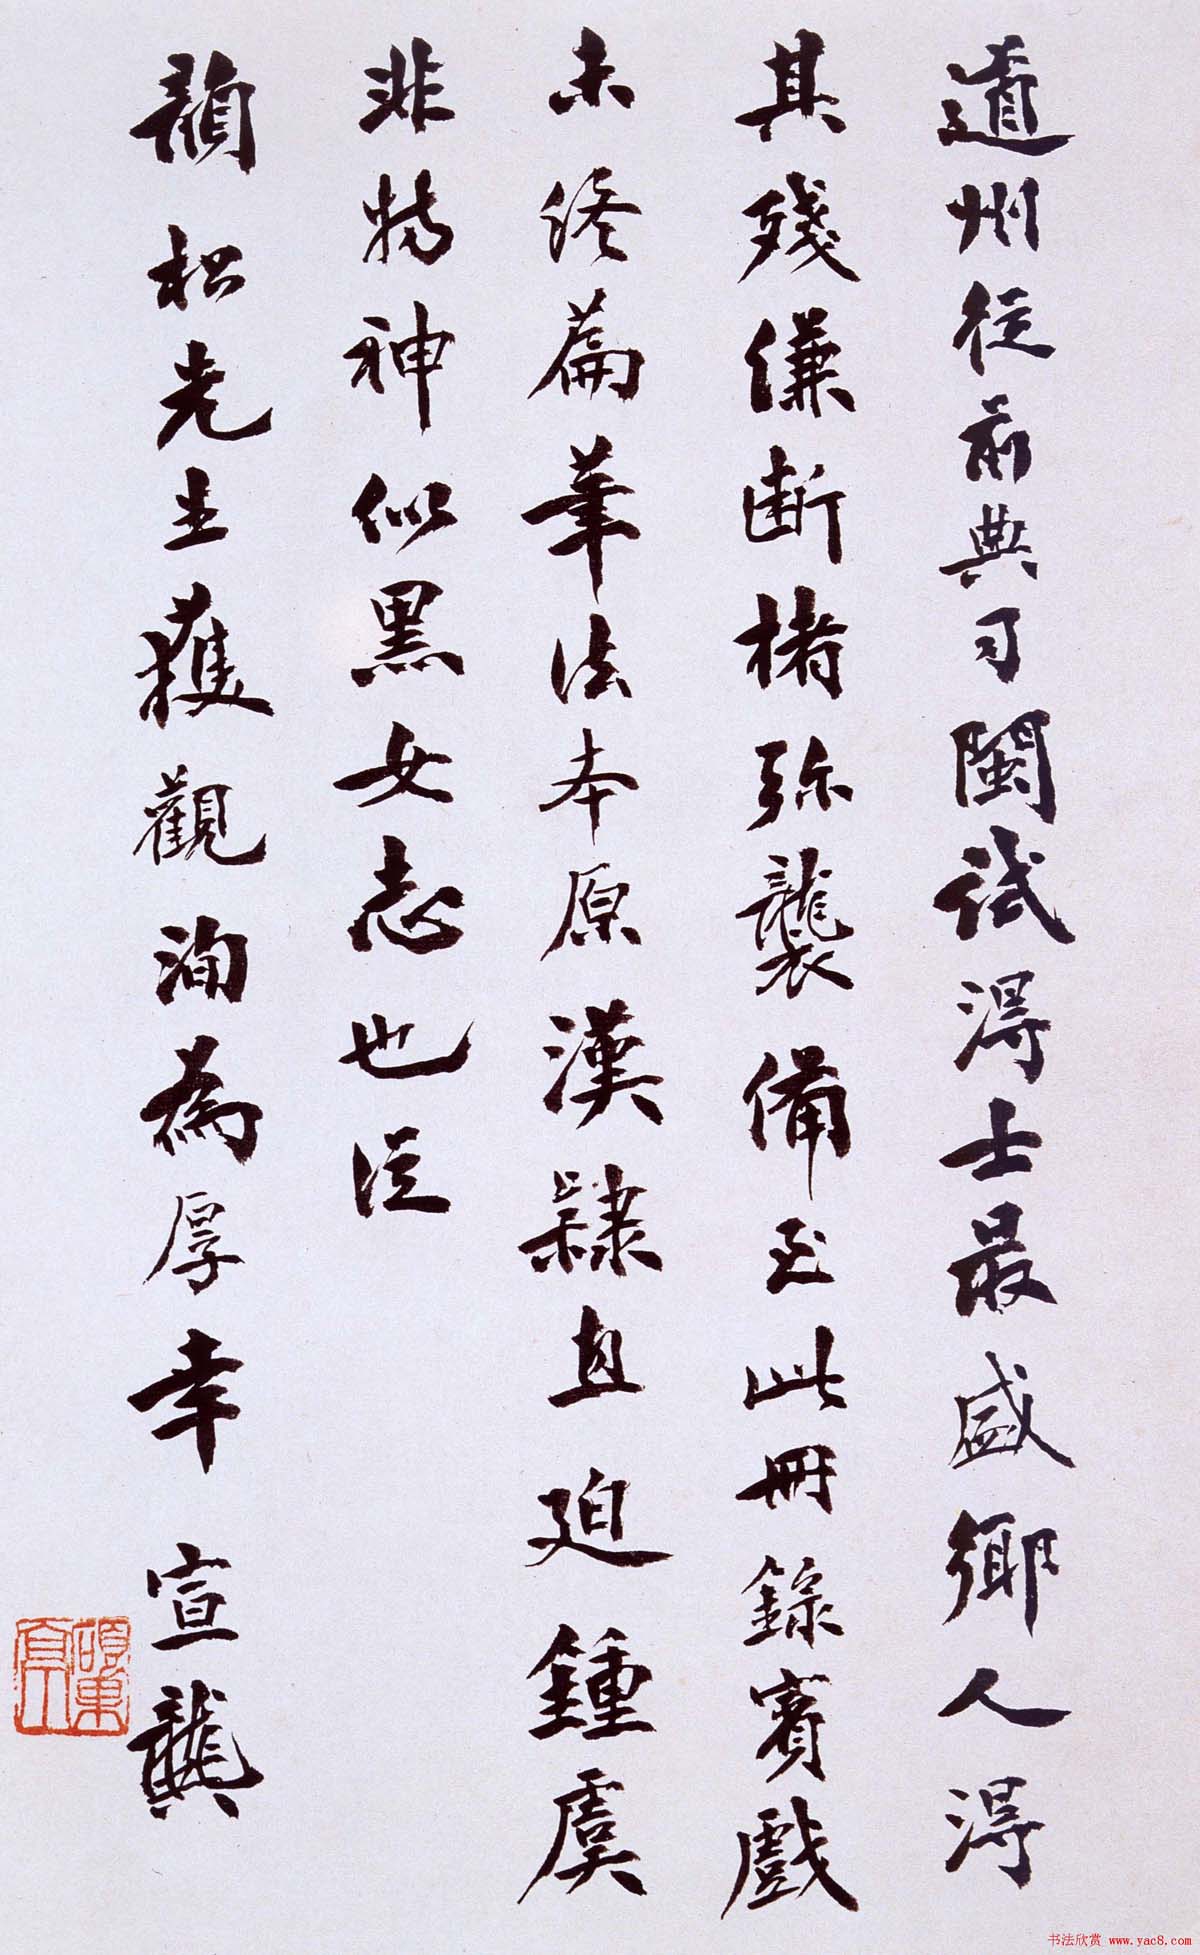 道州從前典司閩試得士最盛鄉人得
其殘縑斷楮珎襲備至此冊錄賓戲
未終篇筆法本原漢隸直追鍾虞
非特神似黑女志也從
韻松先生獲觀洵為厚幸 宣龔
书法欣赏 www.yac8.com